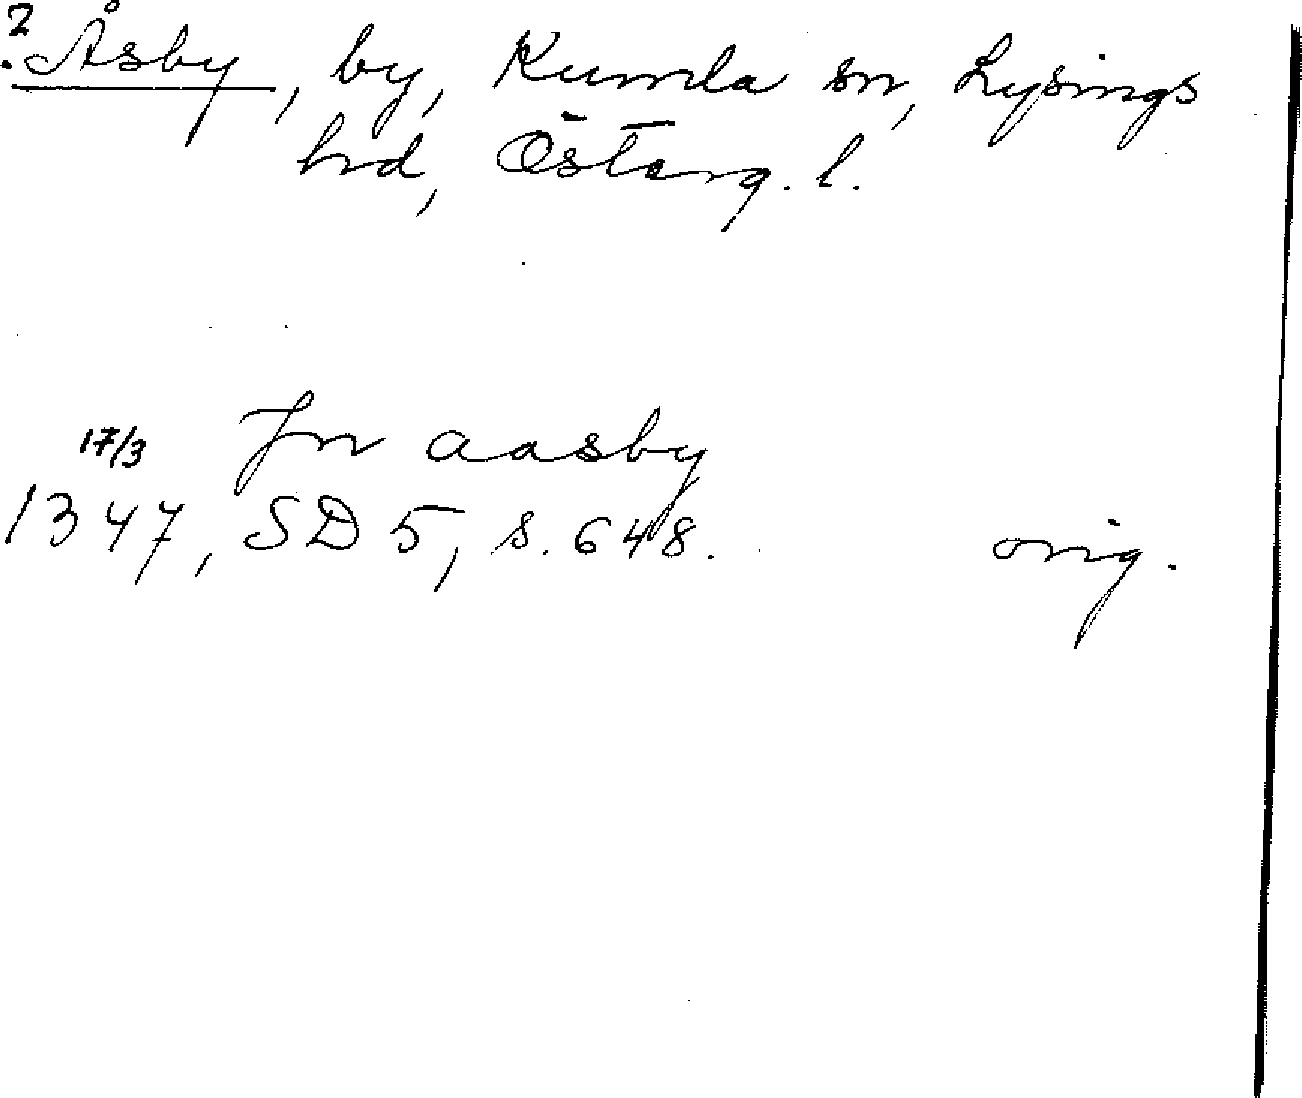 ? Åsby, by, Kumla sn, Lysings
hd, Österg. l.
17/3 Jn aasby
1347, SD 5, s. 648. orig.